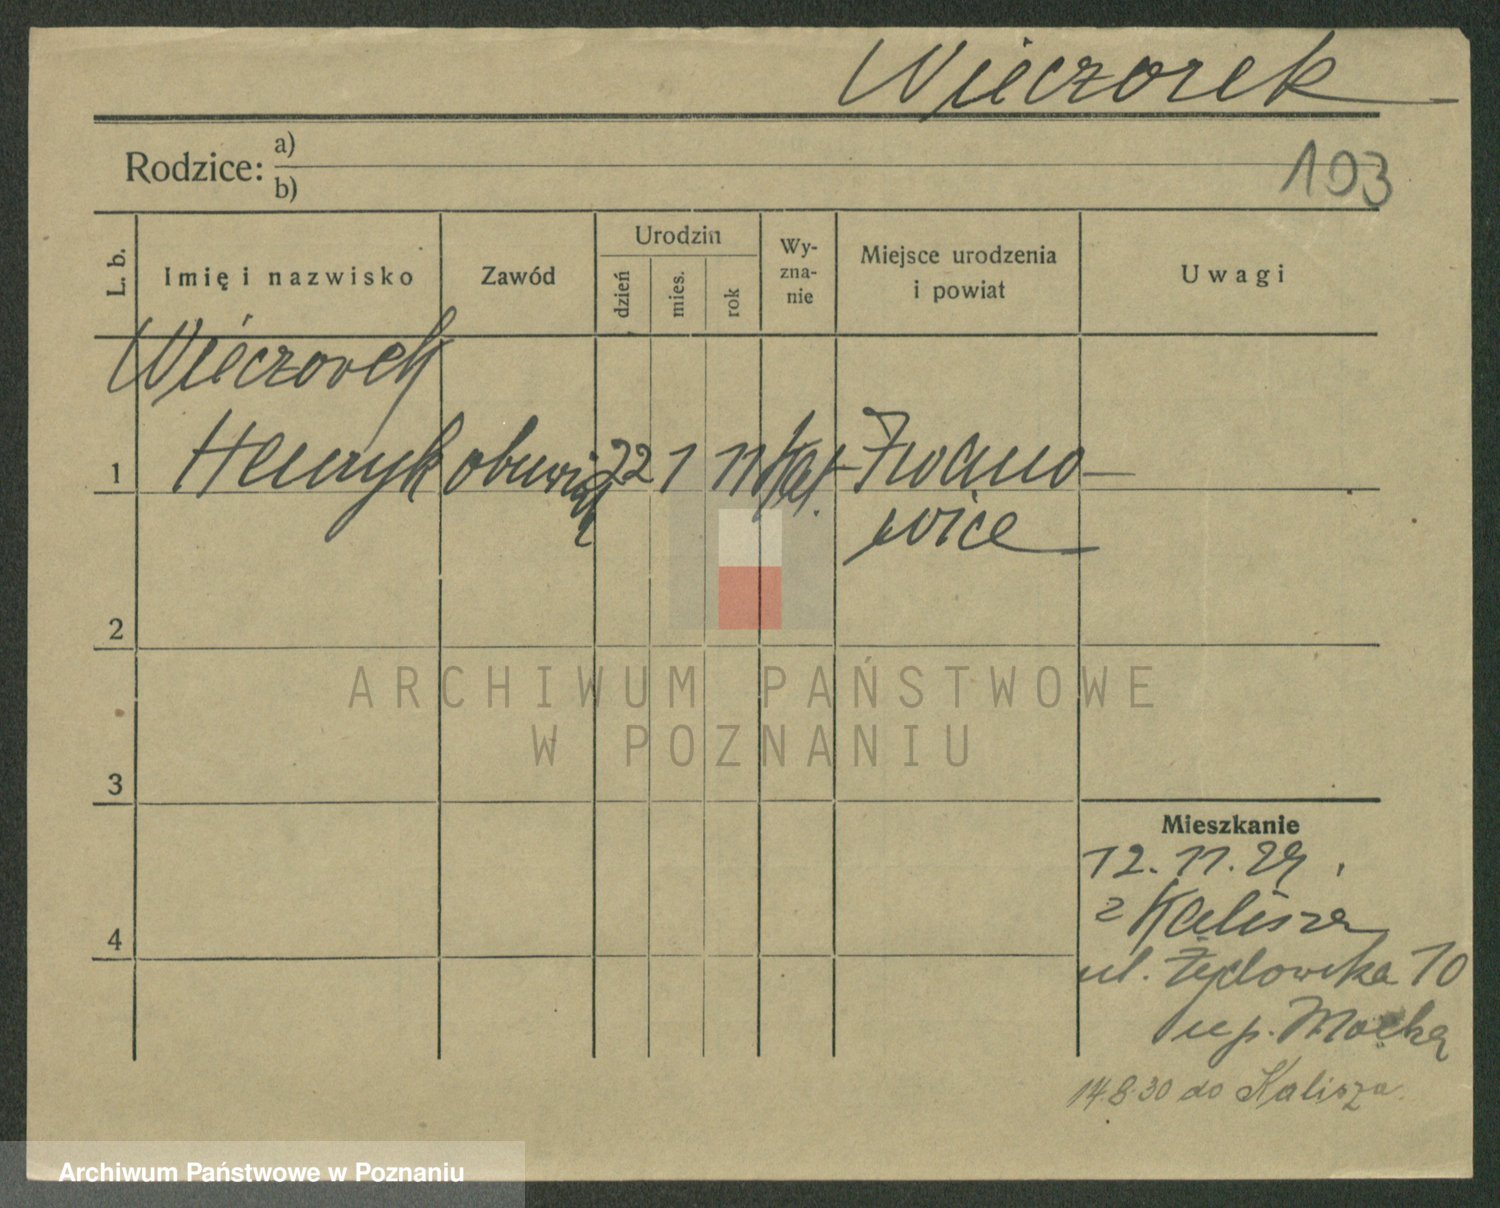 Wieczorek
103
Rodzice: a)
b)
L. b.
Imię i nazwisko
Zawód
Urodzin
dzień
mies.
rok
Wy-
zna-
nie
Miejsce urodzenia
i powiat
Uwagi
Wieczorek
1 Henryk 22 1 11 kat.
wice
2
ARCHIWUM PAŃSTWOWE
W POZNANIU
3
Mieszkanie
12. 11. 29.
z Kalisza
4
ul. 10
u p.
14.8.30 do Kalisza.
Archiwum Państwowe w Poznaniu